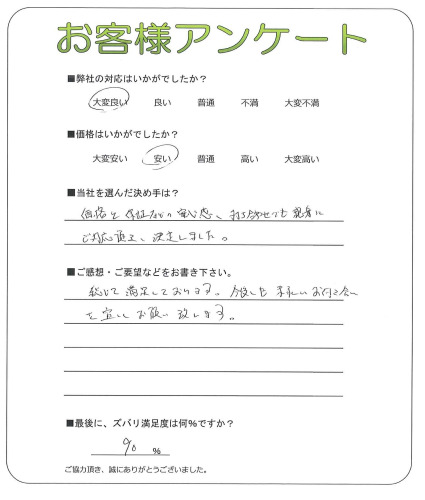 お客様アンケート
■弊社の対応はいかがでしたか？
大変良い 良い 普通 不満 大変不満
■価格はいかがでしたか？
大変安い 安い 普通 高い 大変高い
■当社を選んだ決め手は？
価格と保証などの安心感、打ち合わせでも親身に
ご対応頂き、決定しました。
■ご感想・ご要望などをお書き下さい。
総じて満足しております。今後とも末永いお付き合い
を宜しくお願い致します。
■最後に、ズバリ満足度は何％ですか？
90 ％
ご協力頂き、誠にありがとうございました。